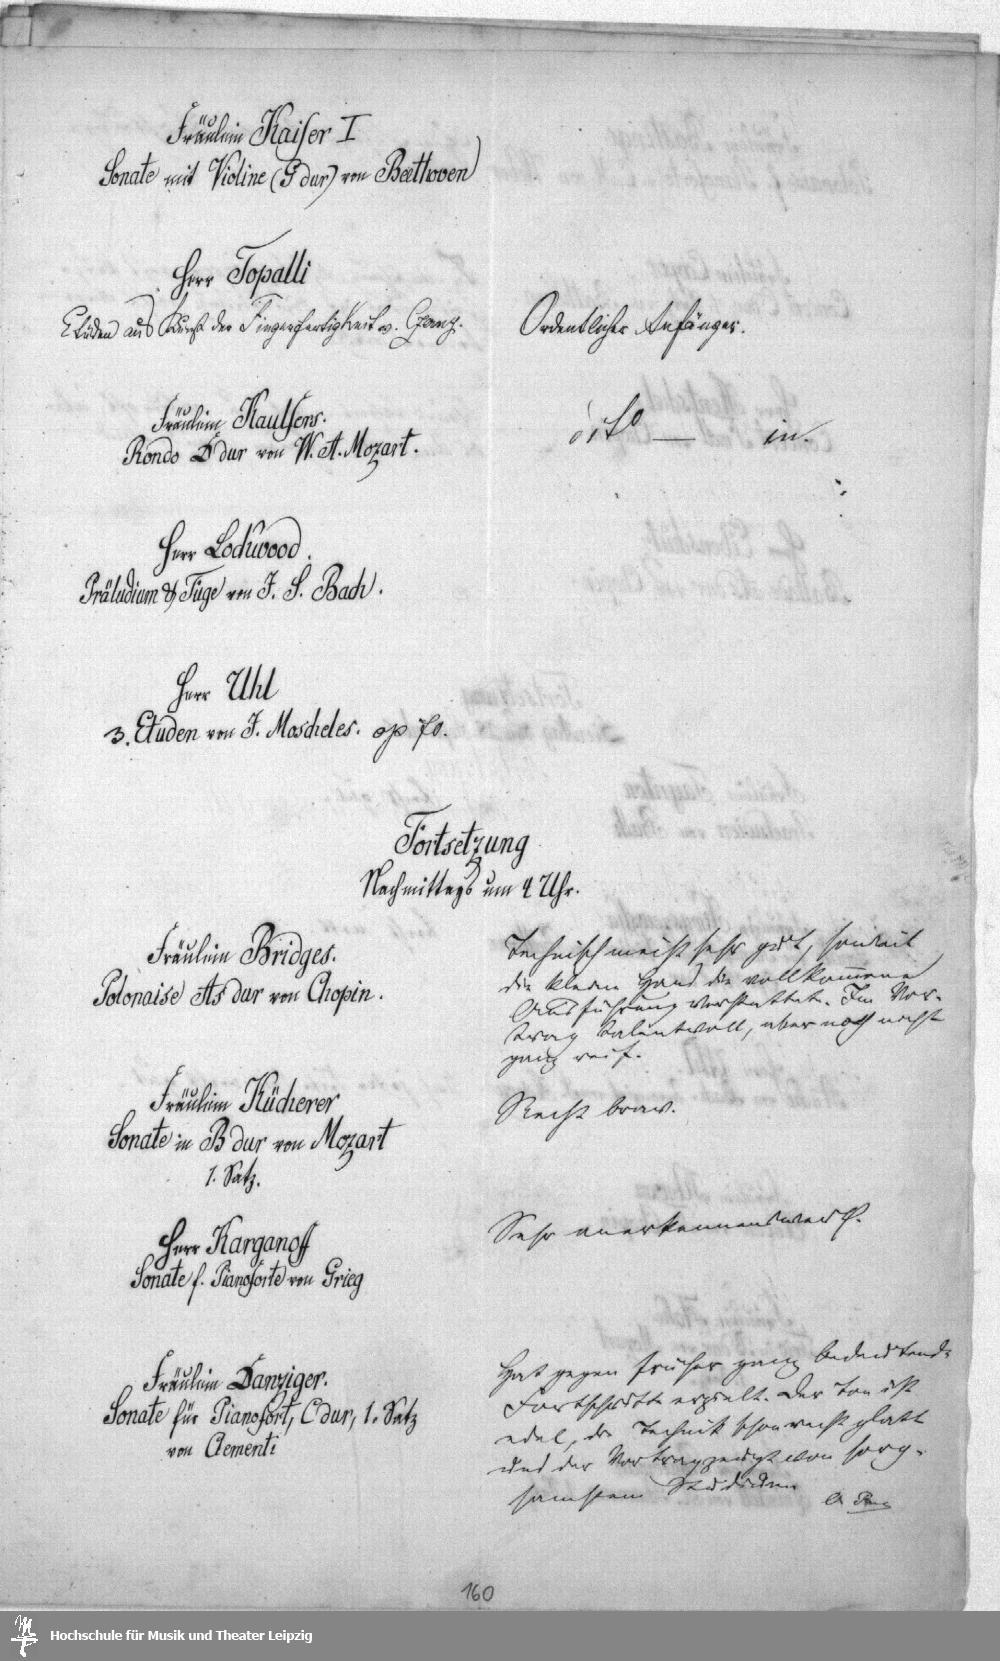 Fräulein Kaiser I
Sonate mit Violine (G dur) von Beethoven
Herr Topalli
Etüden aus Kunst der Fingerfertigkeit v. Czerny.
Ordentlicher Anfänger.
Fräulein Kaulfers.
dito — in.
Rondo D dur von W. A. Mozart.
Herr Lockwood.
Präludium & Fuge von J. S. Bach.
Herr Uhl
3. Etuden von J. Moscheles. op 70.
Fortsetzung
Nachmittags um 4 Uhr.
Fräulein Bridges.
Polonaise As dur von Chopin.
Technisch meist sehr gut, soweit
die kleine Hand die vollkommene
Ausführung verstattet. Im Vor-
trag talentvoll, aber noch nicht
ganz reif.
Fräulein Kücherer
Sonate in B dur von Mozart
1. Satz.
Recht brav.
Herr Karganoff
Sonate f. Pianoforte von Grieg
Sehr anerkennenswerth.
Fräulein Danziger.
Sonate für Pianofort, C dur, 1. Satz
von Clementi
Hat gegen früher ganz bedeutende
Fortschritte erzielt. Der Ton ist
edel, die Technik schon recht glatt
und der Vortrag zeugt von sorg-
samstem Studium
160
Hochschule für Musik und Theater Leipzig